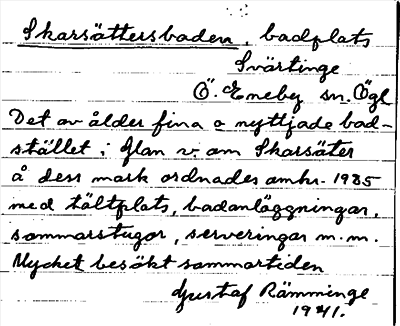 Skarsättersbaden, badplats
Svärtinge
Ö. Eneby sn. Ögl
Det av ålder fina o nyttjade bad-
stället i Glan v. om Skarsäter
å dess mark ordnades omkr. 1935
med tältplats, badanläggningar,
sommarstugor, serveringar m.m.
Mycket besökt sommartiden
Gustaf Rämminge
1941.